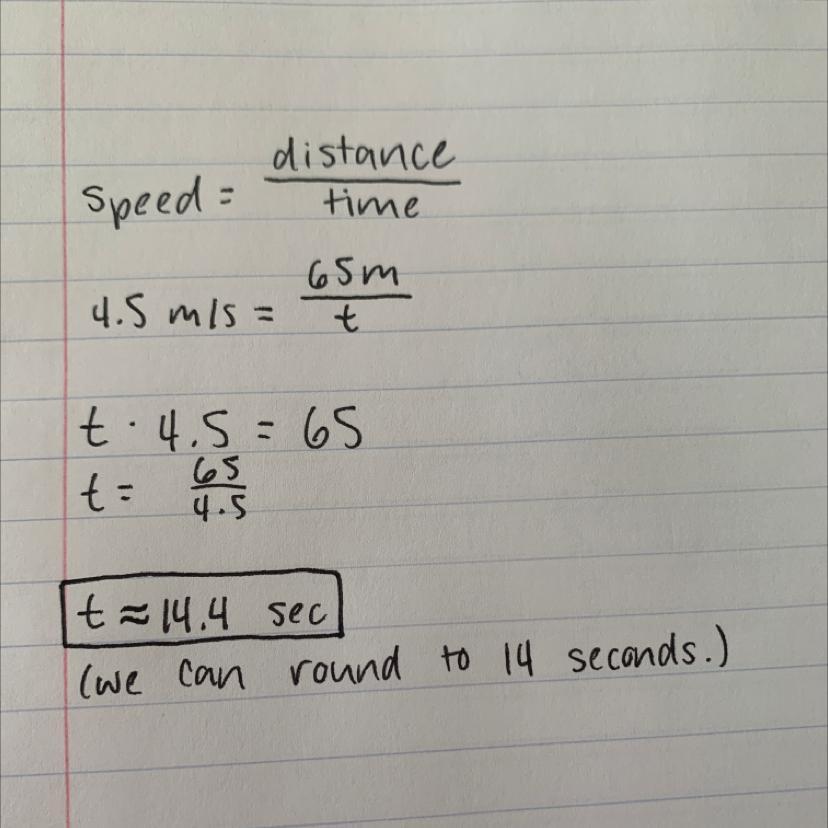 speed = distance / time
4.5 m/s = 65m / t
t · 4.5 = 65
t = 65 / 4.5
t ≈ 14.4 sec
(we can round to 14 seconds.)